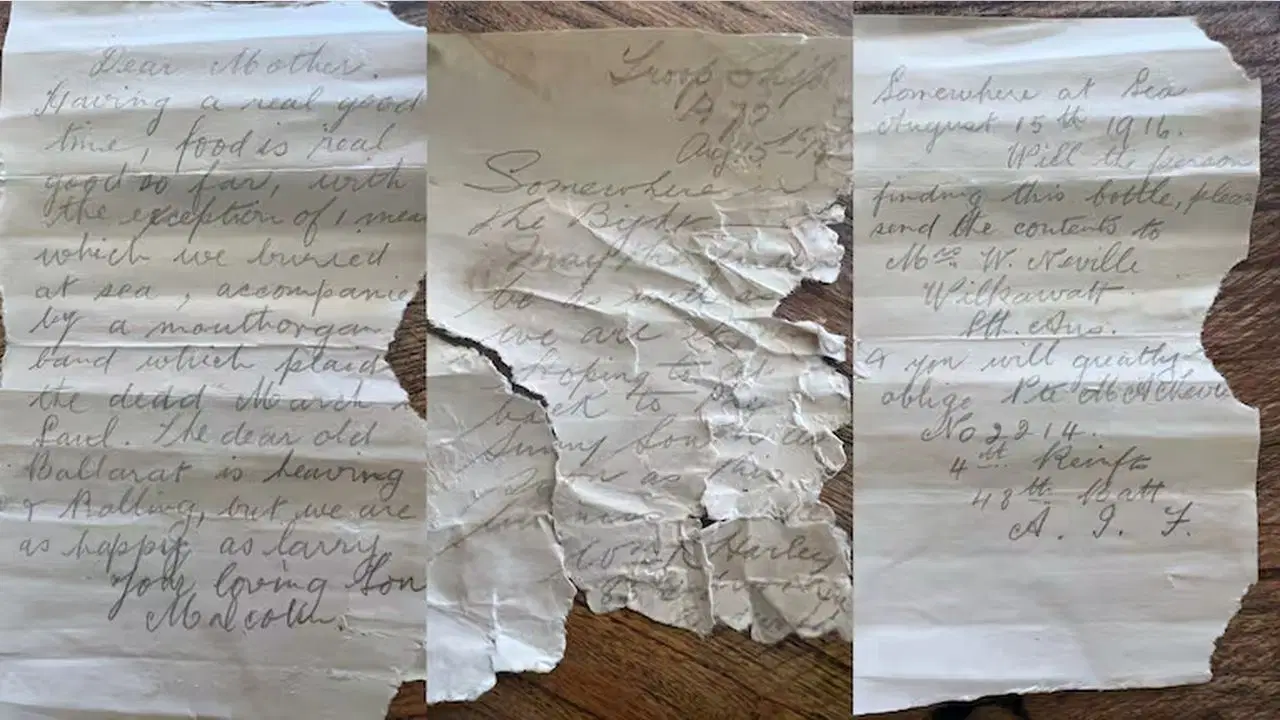 Dear Mother.
Having a real good
time, food is real
good so far, with
the exception of 1 mea
which we burried
at sea, accompanie
by a mouthorgan
band which plaid
the dead March
Saul. The dear old
Ballarat is heaving
& Rolling, but we are
as happy as larry
Your loving Son
Malcolm.
Troop Ship
A 70
Aug 15
Somewhere in
the Bight
May the
be as
we are
hoping to
back to the
Sunny
as
Harley
Somewhere at Sea
August 15th 1916.
Will the person
finding this bottle, pleas
send the contents to
Mrs W. Neville
Wilkawatt
Sth. Aus.
& you will greatly
oblige Pte M A Nevi
No 2214.
4th Reinfts
48th Batt
A. I. F.